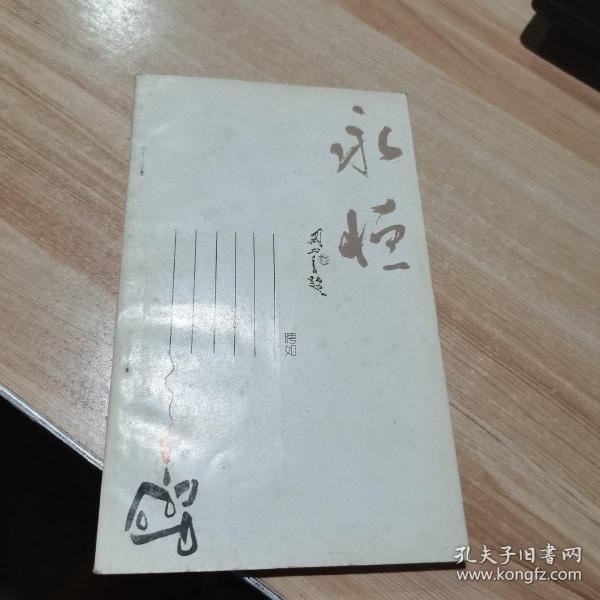 永恒
聘如
孔夫子旧书网
www.kongfz.com